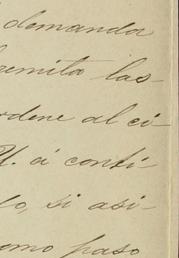 demanda
remita las
ordene al ci-
V. á conti-
lo, si asi-
como paso